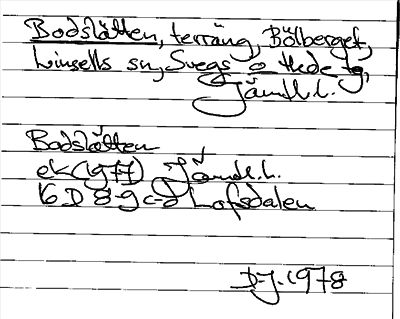 Bodslåtten, terräng, Bölberget,
Linsells sn, Svegs o Hede tg,
Jämtl.l.
Bodslåtten
ek (1977) Jämtl.l.
16D 8-9 c-d Lofsdalen
D-J. 1978